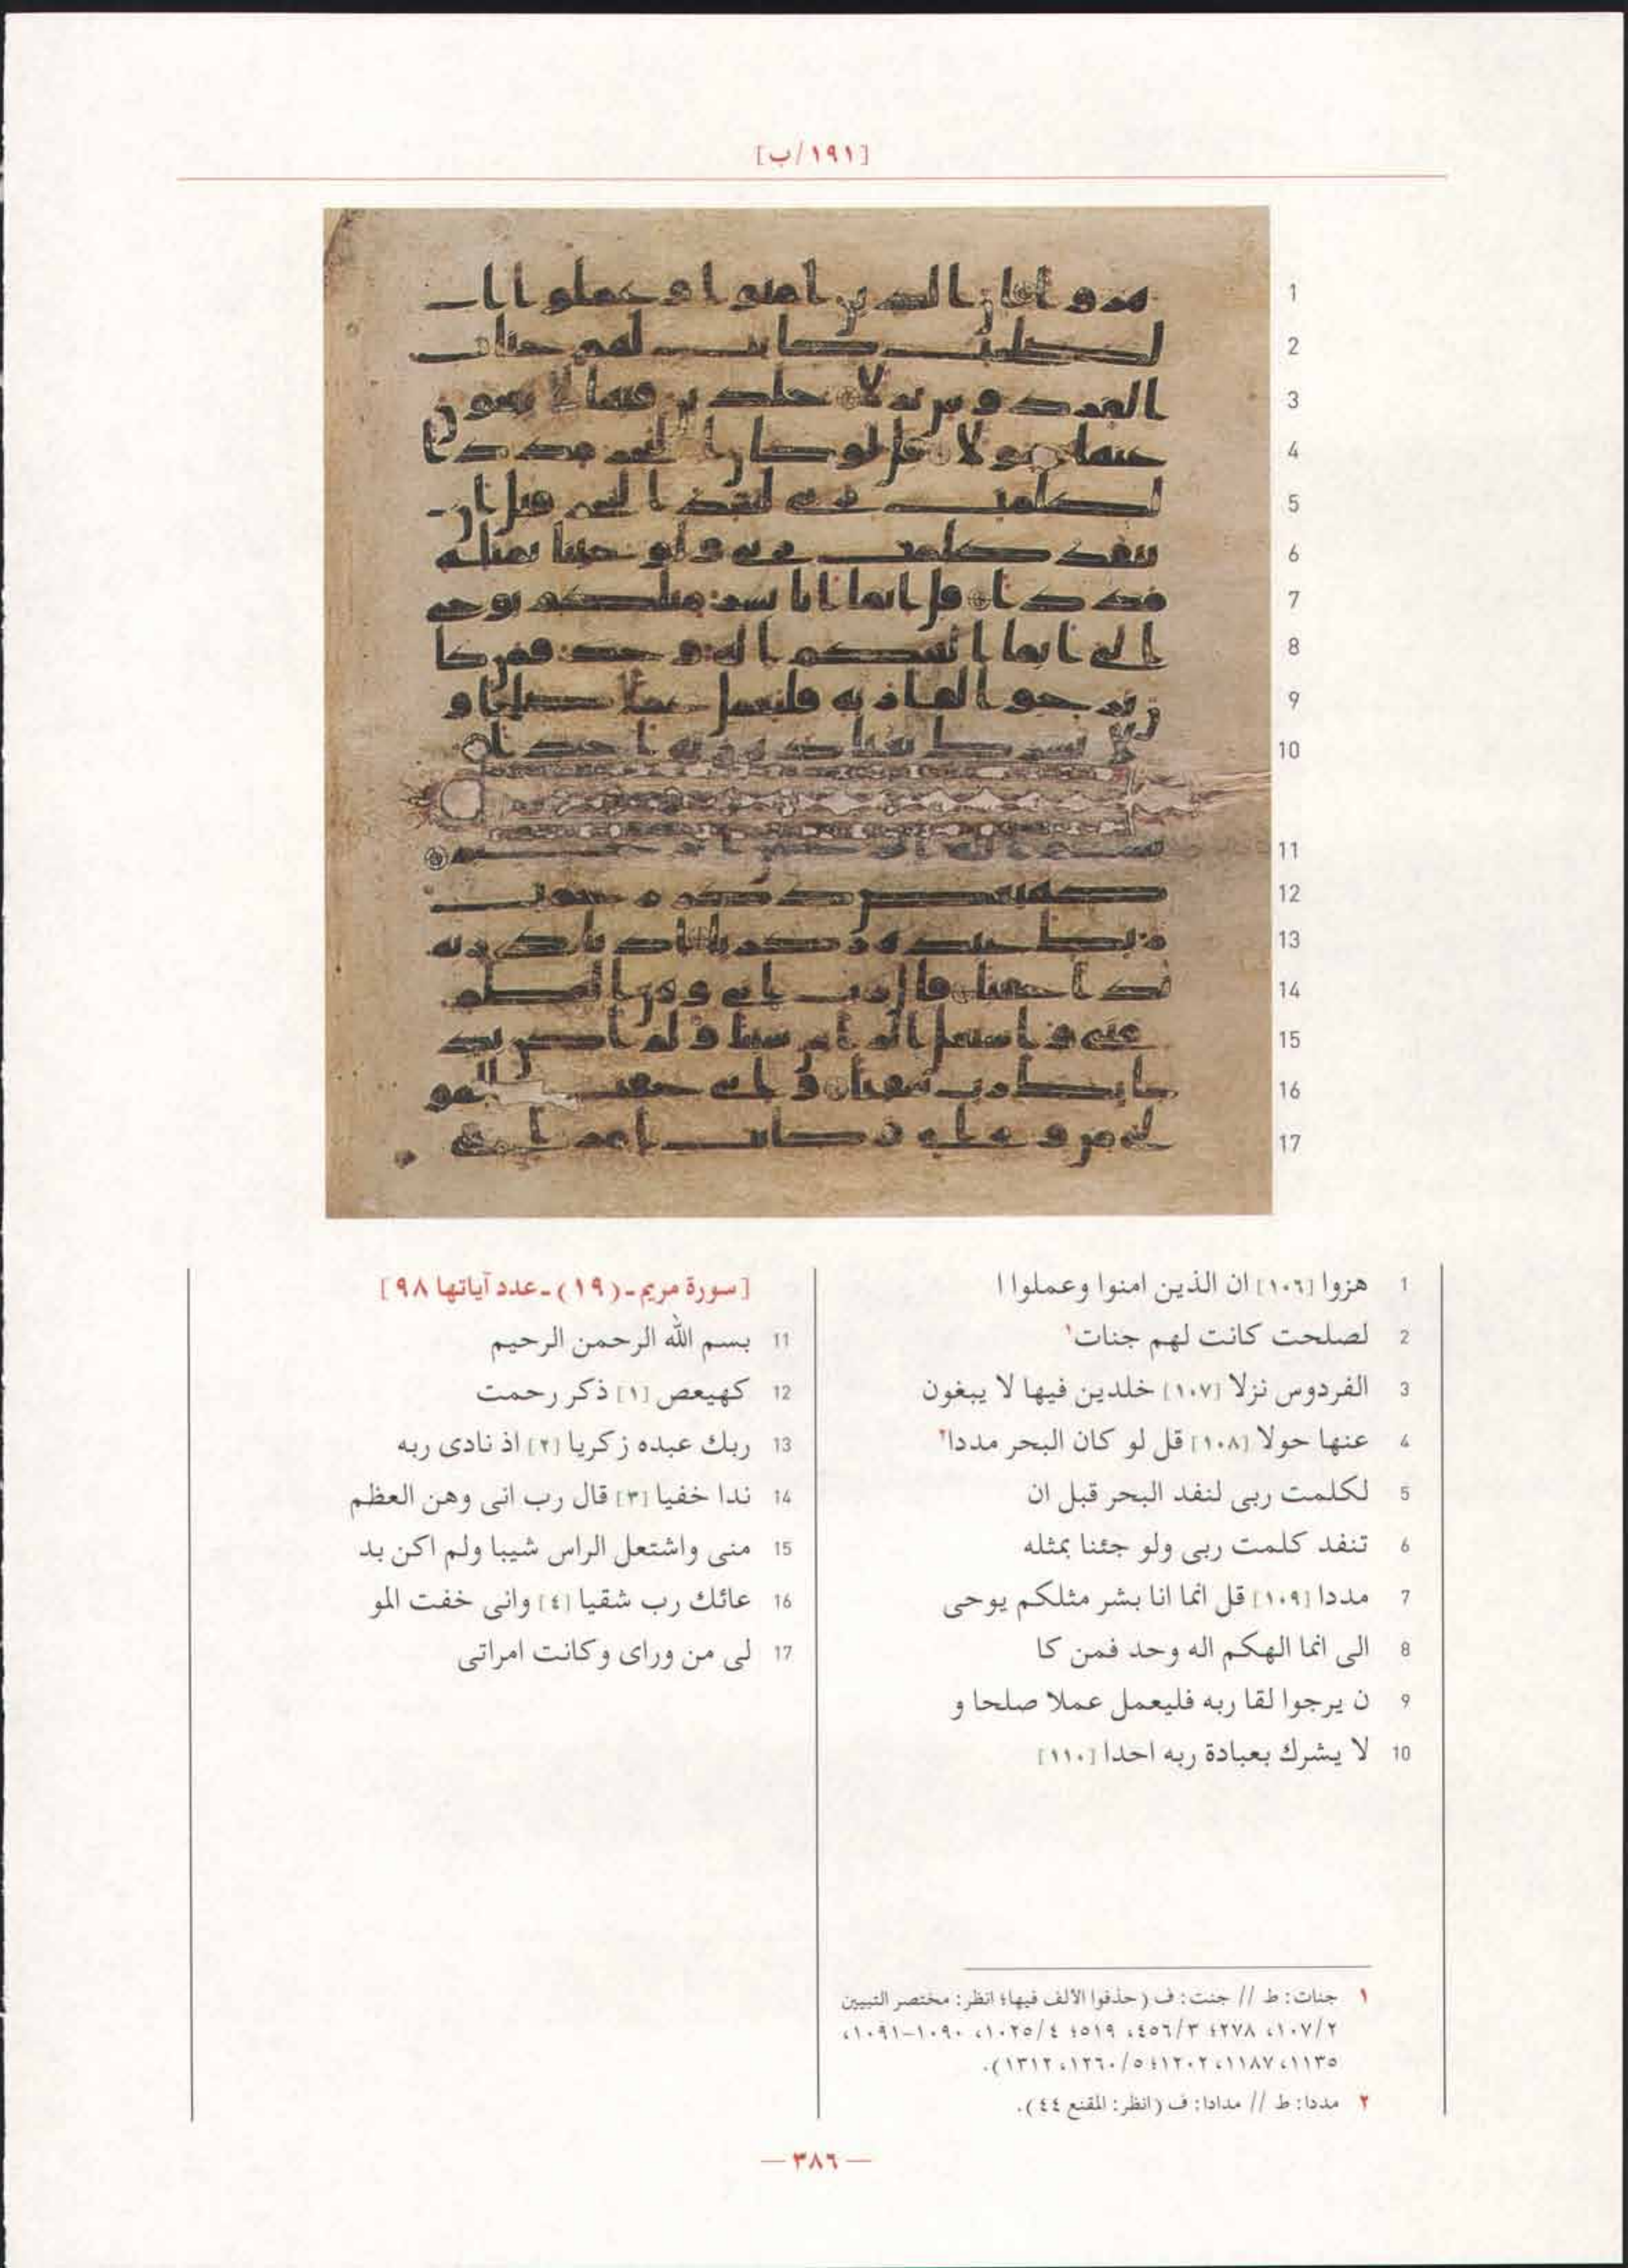 [١٩١/ب]
1 هزوا [١٠٦] ان الذين امنوا وعملوا ا
2 لصلحت كانت لهم جنات١
3 الفردوس نزلا [١٠٧] خلدين فيها لا يبغون
4 عنها حولا [١٠٨] قل لو كان البحر مددا٢
5 لكلمت ربى لنفد البحر قبل ان
6 تنفد كلمت ربى ولو جئنا بمثله
7 مددا [١٠٩] قل انما انا بشر مثلكم يوحى
8 الى انما الهكم اله وحد فمن كا
9 ن يرجوا لقا ربه فليعمل عملا صلحا و
10 لا يشرك بعبادة ربه احدا [١١٠]
[سورة مريم ـ (١٩) ـ عدد آياتها ٩٨]
11 بسم الله الرحمن الرحيم
12 كهيعص [١] ذكر رحمت
13 ربك عبده زكريا [٢] اذ نادى ربه
14 ندا خفيا [٣] قال رب انى وهن العظم
15 منى واشتعل الراس شيبا ولم اكن بد
16 عائك رب شقيا [٤] وانى خفت المو
17 لى من وراى وكانت امراتى
١ جنات: ط // جنت: ف (حذفوا الالف فيها؛ انظر: مختصر التبيين
٢/١٠٧، ٢٧٨؛ ٣/٤٥٦، ٥١٩؛ ٤/١٠٢٥، ١٠٩٠-١٠٩١،
١١٣٥، ١١٨٧، ١٢٠٢؛ ٥/١٢٦٠، ١٣١٢).
٢ مددا: ط // مدادا: ف (انظر: المقنع ٤٤).
— ٣٨٦ —